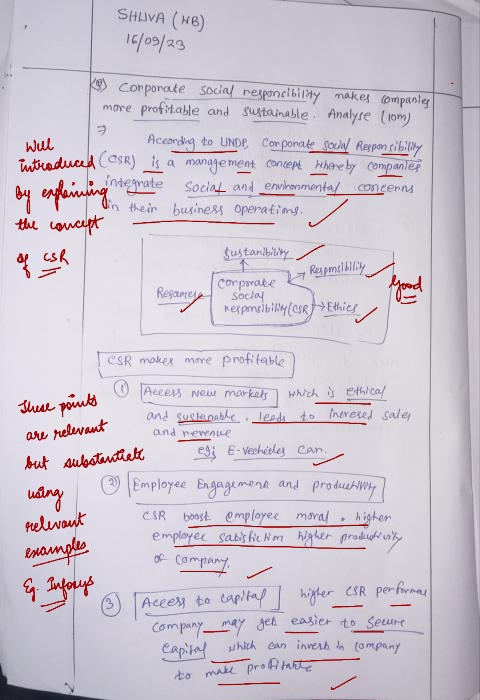 SHIVA (HB)
16/09/23
(Q) Corporate social responsibility makes companies
more profitable and sustainable. Analyse (10m)
→
According to UNDP, Corporate Social Responsibility
(CSR) is a management concept whereby companies
integrate Social and environmental concerns
in their business operations.
Well
introduced
by explaining
the concept
of CSR
Sustanibility
Responsibility
Corporate
Social
responsibility (CSR
Ethics
Good
CSR makes more profitable
① Access New markets which is ethical
and sustenable. leads to incresed sales
and revenue
eg; E-vechicles Car.
② Employee Engagement and productivity
CSR boost employee moral. higher
employee satisfictim higher productivity
of company.
③ Access to capital higher CSR performal
company may get easier to secure
capital which can invest in company
to make profitable
These points
are relevant
but substantiate
using
relevant
examples
Eg. Infosys